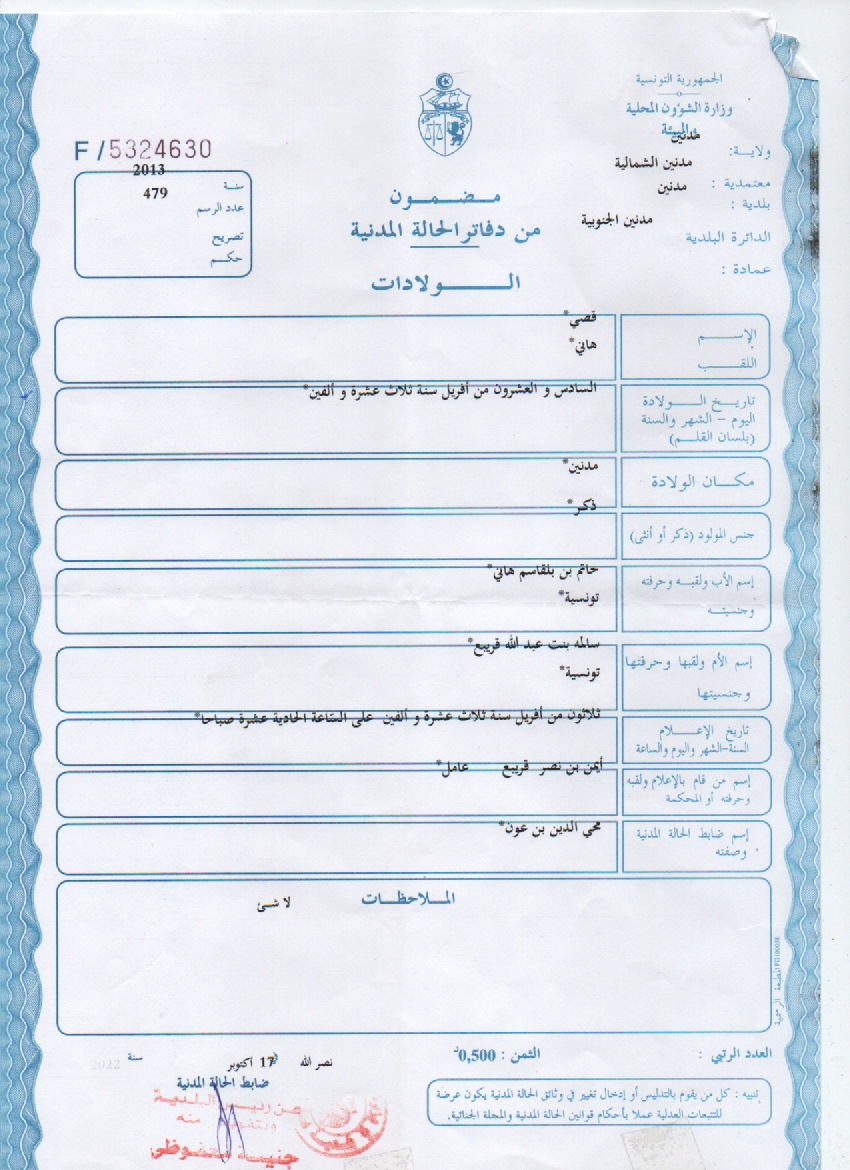 الجمهورية التونسية
وزارة الشؤون المحلية
والبيئة
ولاية: مدنين
معتمدية : مدنين الشمالية
بلدية : مدنين
الدائرة البلدية مدنين الجنوبية
عمادة :
F/5324630
سنة 2013
عدد الرسم 479
تصريح
حكم
مضمون
من دفاتر الحالة المدنية
الولادات
الإسم قصي*
اللقب هاني*
تاريخ الولادة
اليوم - الشهر والسنة
(بلسان القلم)
السادس و العشرون من أفريل سنة ثلاث عشرة و ألفين*
مكان الولادة مدنين*
جنس المولود (ذكر أو أنثى) ذكر*
إسم الأب ولقبه وحرفته حاتم بن بلقاسم هاني*
وجنسيته تونسية*
إسم الأم ولقبها وحرفتها سالمه بنت عبد الله قريبع*
وجنسيتها تونسية*
تاريخ الإعلام
السنة-الشهر واليوم والساعة
ثلاثون من أفريل سنة ثلاث عشرة و ألفين على السّاعة الحادية عشرة صباحا*
إسم من قام بالإعلام ولقبه
وحرفته أو المحكمة
أيمن بن نصر قريبع عامل*
إسم ضابط الحالة المدنية
وصفته
محي الدين بن عون*
الملاحظات
لا شئ
المطبعة الرسمية
العدد الرتبي :
الثمن : 0,500د
نصر الله في 17 أكتوبر سنة 2022
ضابط الحالة المدنية
عن رئيس البلدية
وبتفويض منه
تنبيه : كل من يقوم بالتدليس أو إدخال تغيير في وثائق الحالة المدنية يكون عرضة
للتتبعات العدلية عملا بأحكام قوانين الحالة المدنية والمجلة الجنائية.